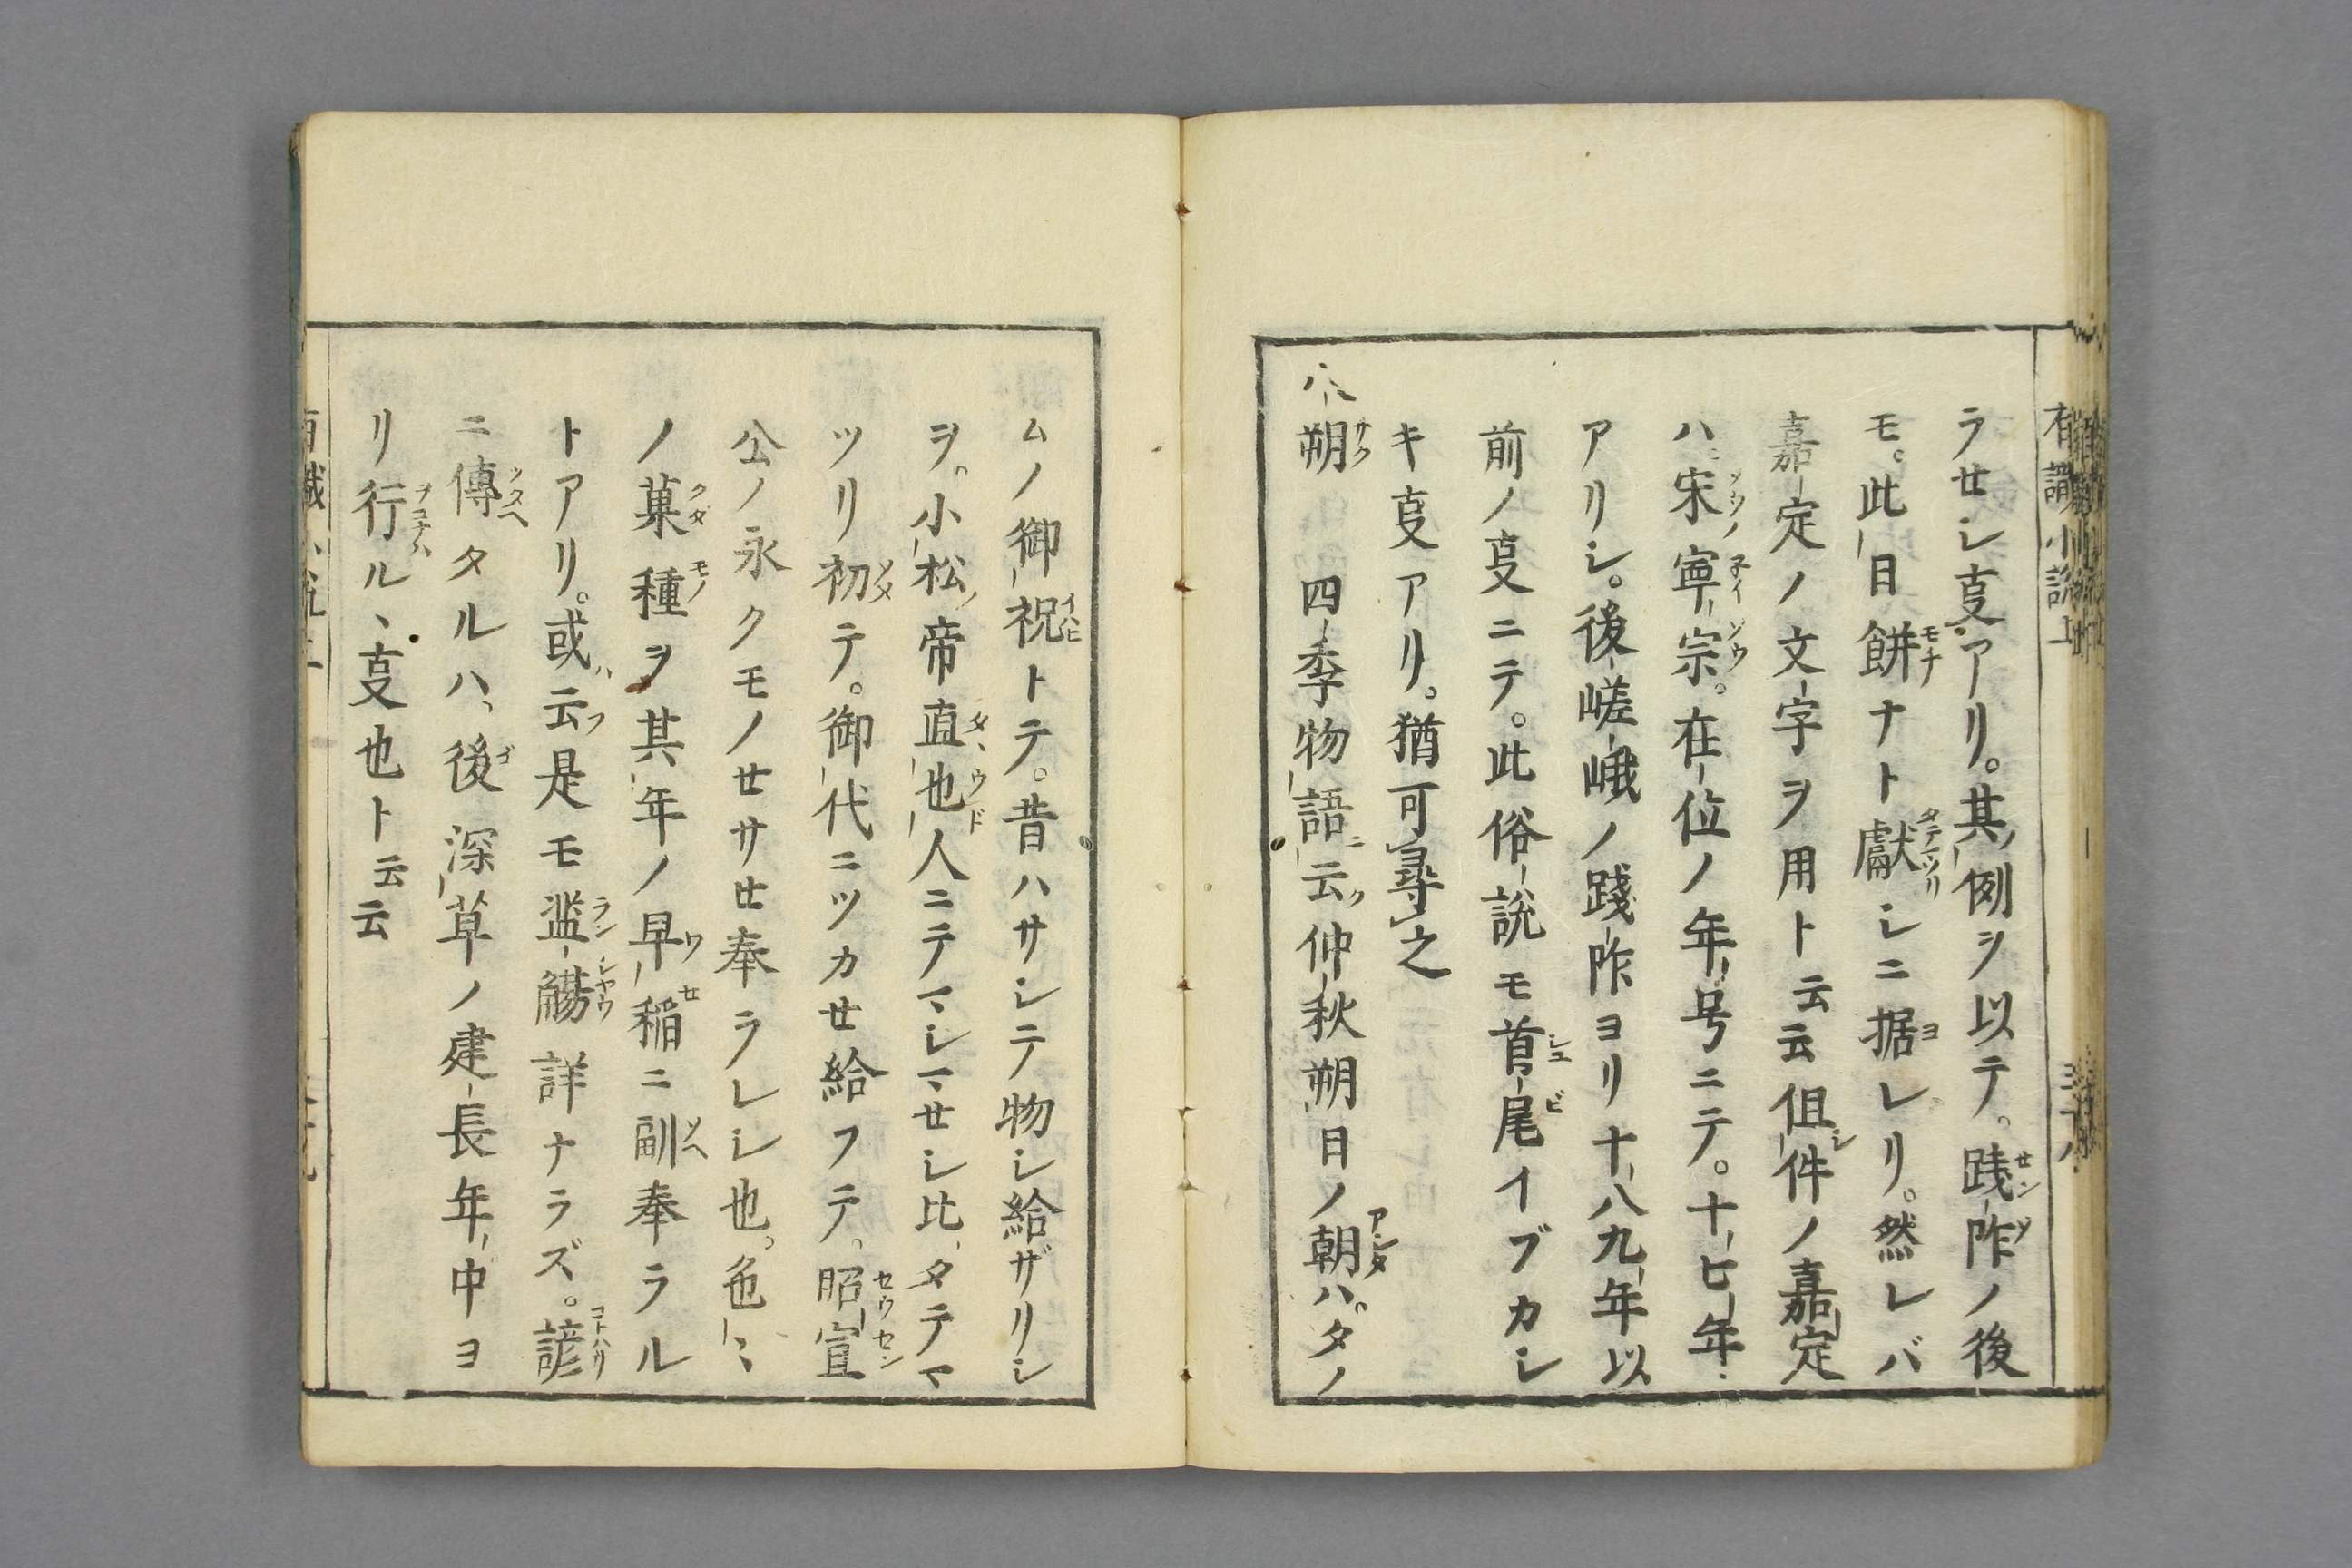 有識小説上
ラせシ叓アリ。其例ヲ以テ。践祚ノ後
モ。此日餅ナト獻シニ据レリ。然レバ
嘉定ノ文字ヲ用ト云云但件ノ嘉定
ハ宋寧宗。在位ノ年号ニテ。十七年
アリシ。後嵯峨ノ踐祚ヨリ十八九年以
前ノ叓ニテ。此俗説モ首尾イブカシ
キ叓アリ。猶可尋之
八朔 四季物語云仲秋朔日ノ朝ハ。タノ
ムノ御祝トテ。昔ハサシテ物シ給ザリシ
ヲ。小松ノ帝直也人ニテマシマせシ比、タテマ
ツリ初テ。御代ニツカせ給フテ。昭宣
公ノ永クモノせサせ奉ラレシ也。色〻
ノ菓種ヲ其年ノ早早稲ニ副奉ラル
トアリ。或ハ云フ是モ濫觴詳ナラズ。諺
ニ傳タルハ、後深草ノ建長年中ヨ
リ行ルヽ叓也ト云云